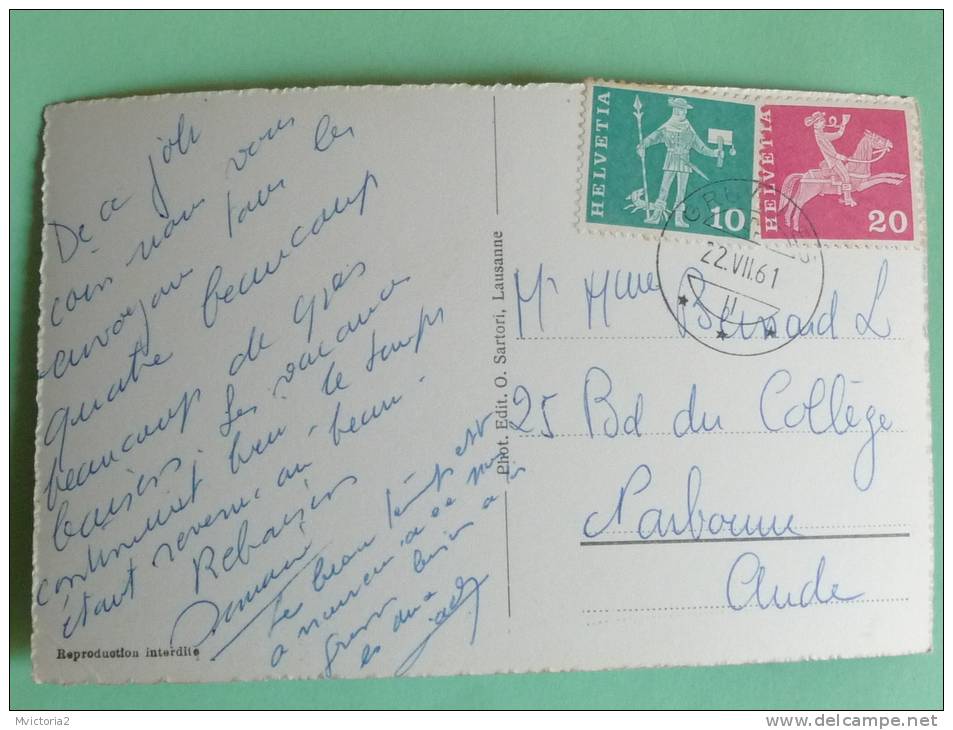 De ce joli
coin nous vous
envoyons tous les
quatre beaucoup
beaucoup de gros
baisers. Les vacances
continuent bien. le temps
étant revenu au beau.
Rebaisers
le beau temps est
HELVETIA
10
HELVETIA
20
22.VII.61
11
Mr Mme Bernard L
25 Bd du Collège
Narbonne
Aude
Phot. Edit. O. Sartori, Lausanne
Reproduction interdite
Mvictoria2
www.delcampe.net